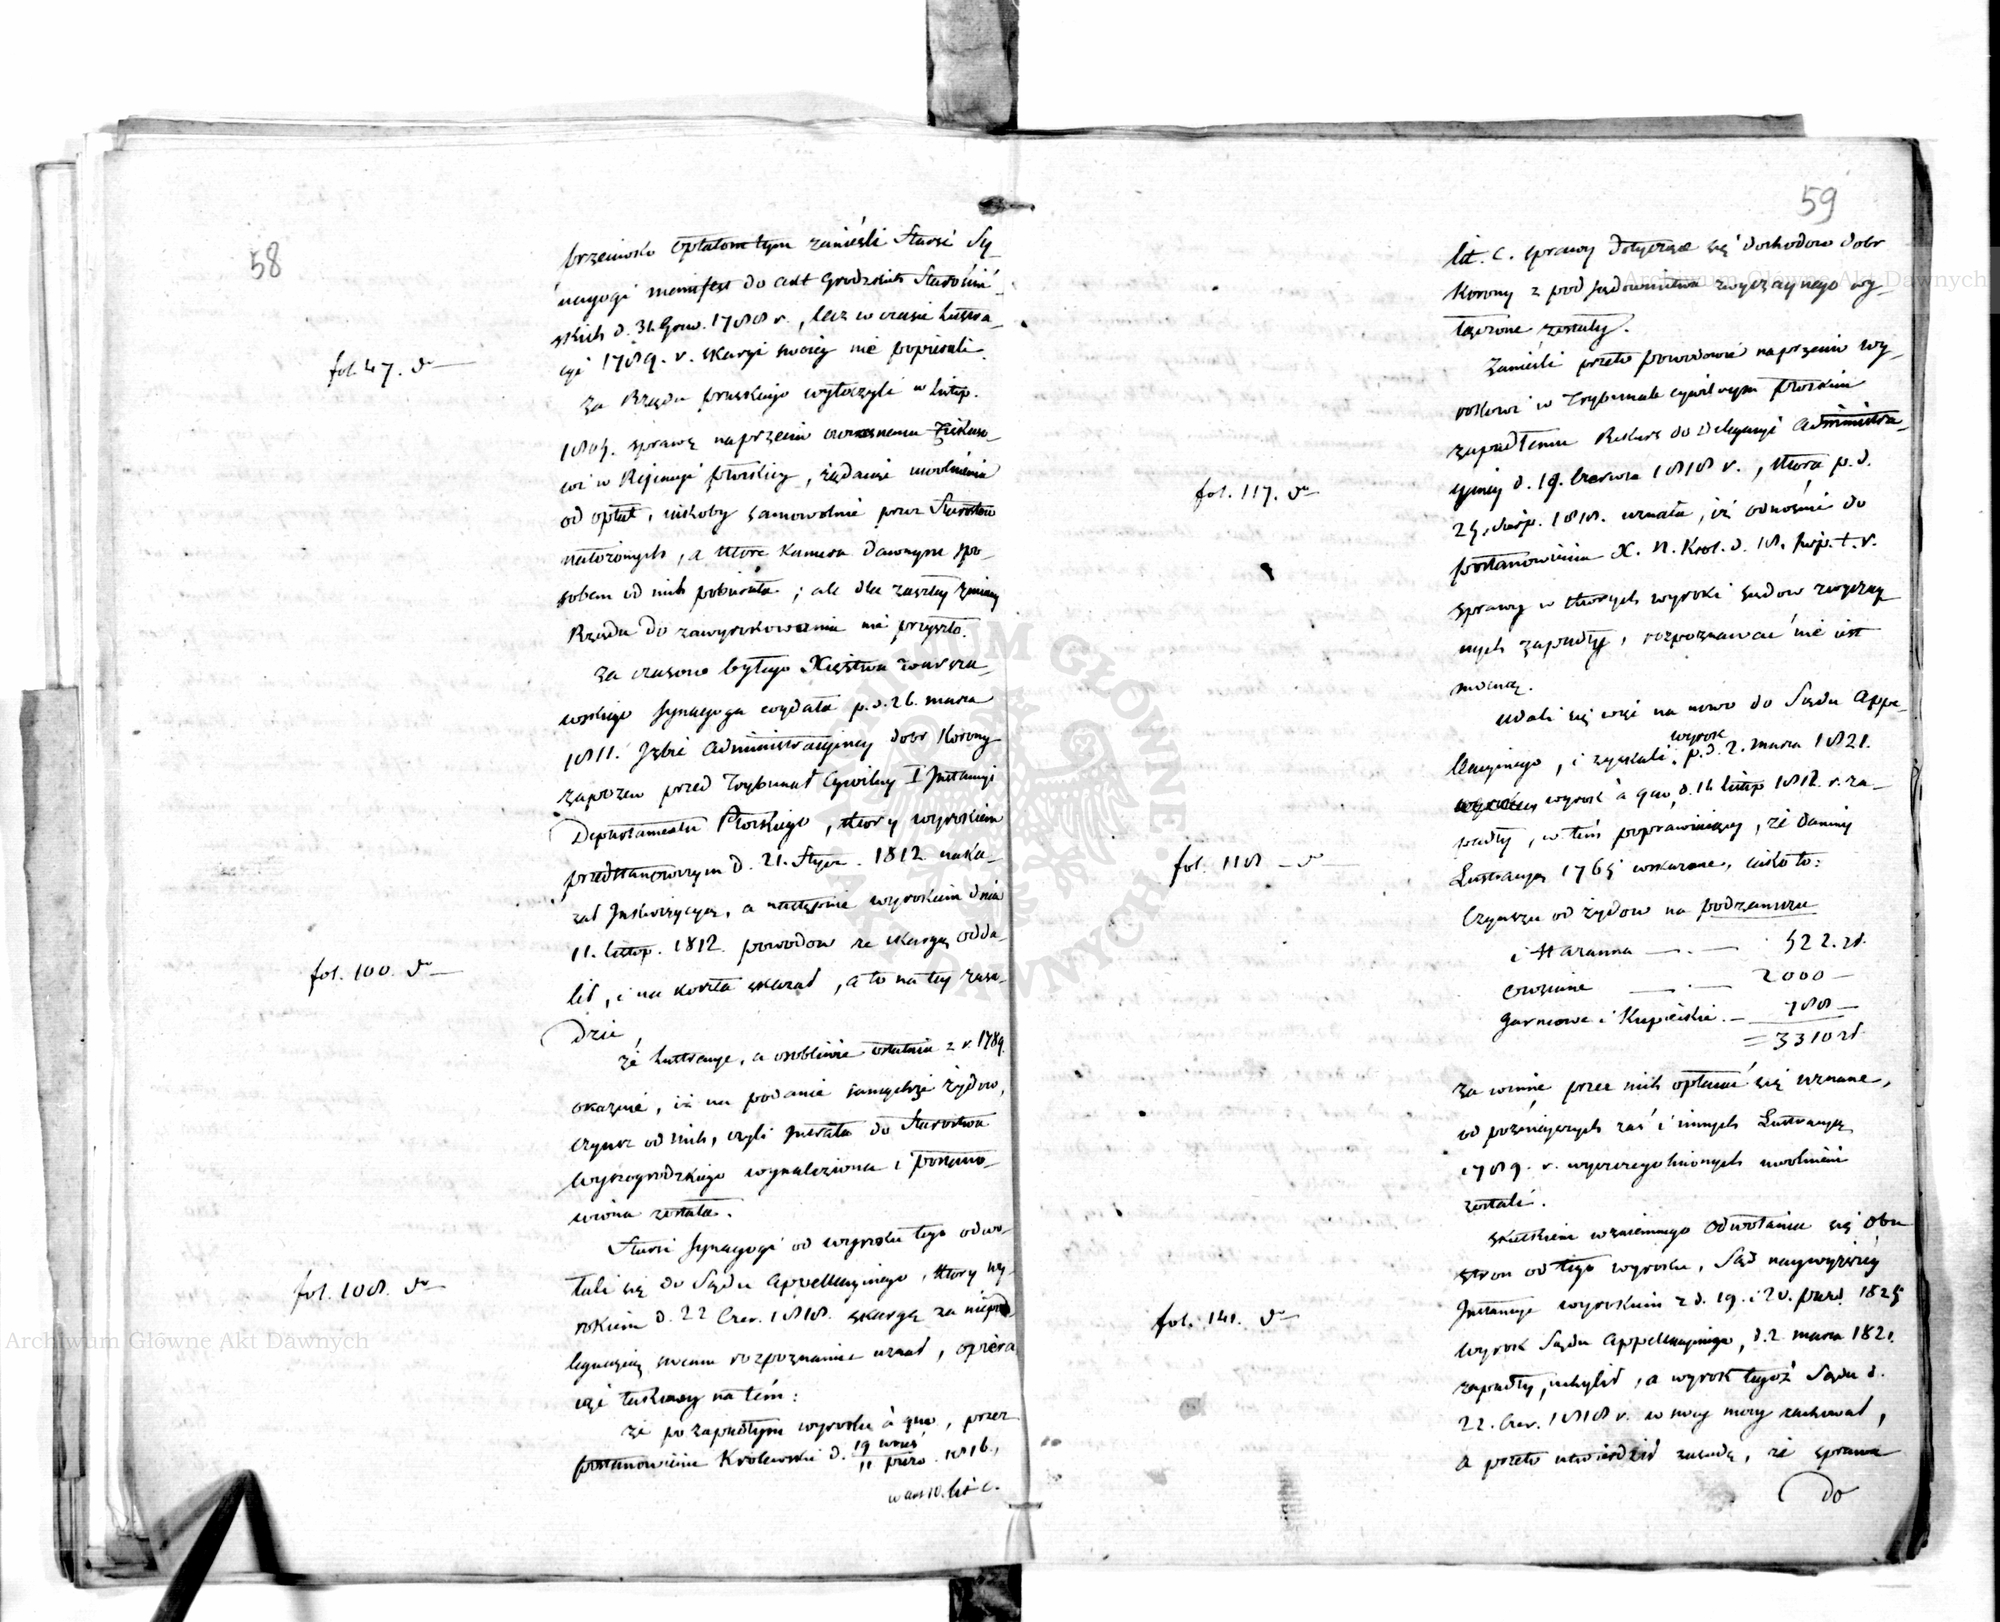 58
brzeciwko opłatom tym zanieśli Starsi Sy-
nagogi manifest do akt Grodzkich
skich d. 31. Grud. 1788 r., lecz w czasie Lustra-
cyi 1789. r. skargi swoiey nie popierali.
fol. 47. do
Za Rządu pruskiego wytoczyli w Listop.
1805. sprawę naprzeciw owczesnemu
wi w Rejencyi płockiey, żądaiąc uwolnienia
od opłat, iakoby samowolnie przez Starostow
nałożonych, a które Kamera dawnym spo-
sobem od nich pobierała; ale dla zaszłey zmiany
Rządu do zawyrokowania nie przyszło.
Za czasow byłego Xięstwa Warsza-
wskiego Synagoga wydała p. d. 26. marca
1811. Izbie Administracyiney dobr Korony
zapozew przed Trybunał Cywilny I Instancyi
Departamentu Płockiego, który wyrokiem
przedstanowczym d. 21. Stycz. 1812 naka-
zał Inkwizycyą, a następnie wyrokiem dnia
11. listop. 1812. powodow ze skargą odda-
lił, i na koszta skazał, a to na tey zasa-
dzie,
fol. 100. do
że Lustracye, a osobliwie ostatnia z r. 1789.
okazuie, iż na podanie samychże żydow,
czynsz od nich, czyli Intrata do Starostwa
Wyszogrodzkiego wynaleziona i postano-
wiona została.
Starsi Synagogi od wyroku tego odwo-
łali się do Sądu Appellacyinego, który wy-
rokiem d. 22 Czer. 1818. skargę za niepod-
legaiącą swemu rozpoznaniu uznał, opiera-
iąc takowy na tém:
fol. 108. do
że po zapadłym wyroku à quo, przez
postanowienie Krolewskie d. 19 wrześ / 11 paźd. 1816.,
w art 10. lit c.
59
lit. c. sprawy dotyczące się dochodow dobr
Korony z pod sądownictwa zwyczaynego wy-
łączone zostały.
Zanieśli przeto powodowie naprzeciw wy-
rokowi w Trybunale cywilnym płockim
zapadłemu Rekurs do Delegacyi Administra-
cyiney d. 19. Czerwca 1818 r., która p. d.
25. Sierp. 1818. uznała, iż odnośnie do
postanowienia X. N. Krol. d. 18. t. r.
sprawy w których wyroki sądow zwyczay
nych zapadły, rozpoznawać nie iest
mocną.
fol. 117. do
Udali się więc na nowo do Sądu Appe-
llacyinego, i zyskali wyrok p. d. 2. marca 1821.
wyrok à quo, d. 11 listop 1812. r. za-
padły, w tém poprawiaiący, że daniny
Lustracyą 1765 wskazane, iako to:
fol. 118 do
Czynszu od żydow na podzamczu
i Hazanna 522. zł.
Owsiane 2000 —
Garncowe i Kupieckie. — 788 —
= 3310 zł
za winne przez nich opłacać się uznane,
od pozniejszych zaś i innych Lustracyą
1789. r. wyszczególnionych uwolnieni
zostali.
Skutkiem wzaiemnego odwołania się obu
stron od tego wyroku, Sąd naywyższey
Instancyi wyrokiem z d. 19. i 20. paźd. 1825
wyrok Sądu Appellacyinego, d. 2 marca 1821.
zapadły, uchylił, a wyrok tegoż Sądu d.
22. Czer. 1818 r. w swey mocy zachował,
a przeto utwierdził zasadę, że sprawa
fol. 141. do
do
Archiwum Główne Akt Dawnych
Archiwum Główne Akt Dawnych
ARCHIWUM GŁÓWNE AKT DAWNYCH